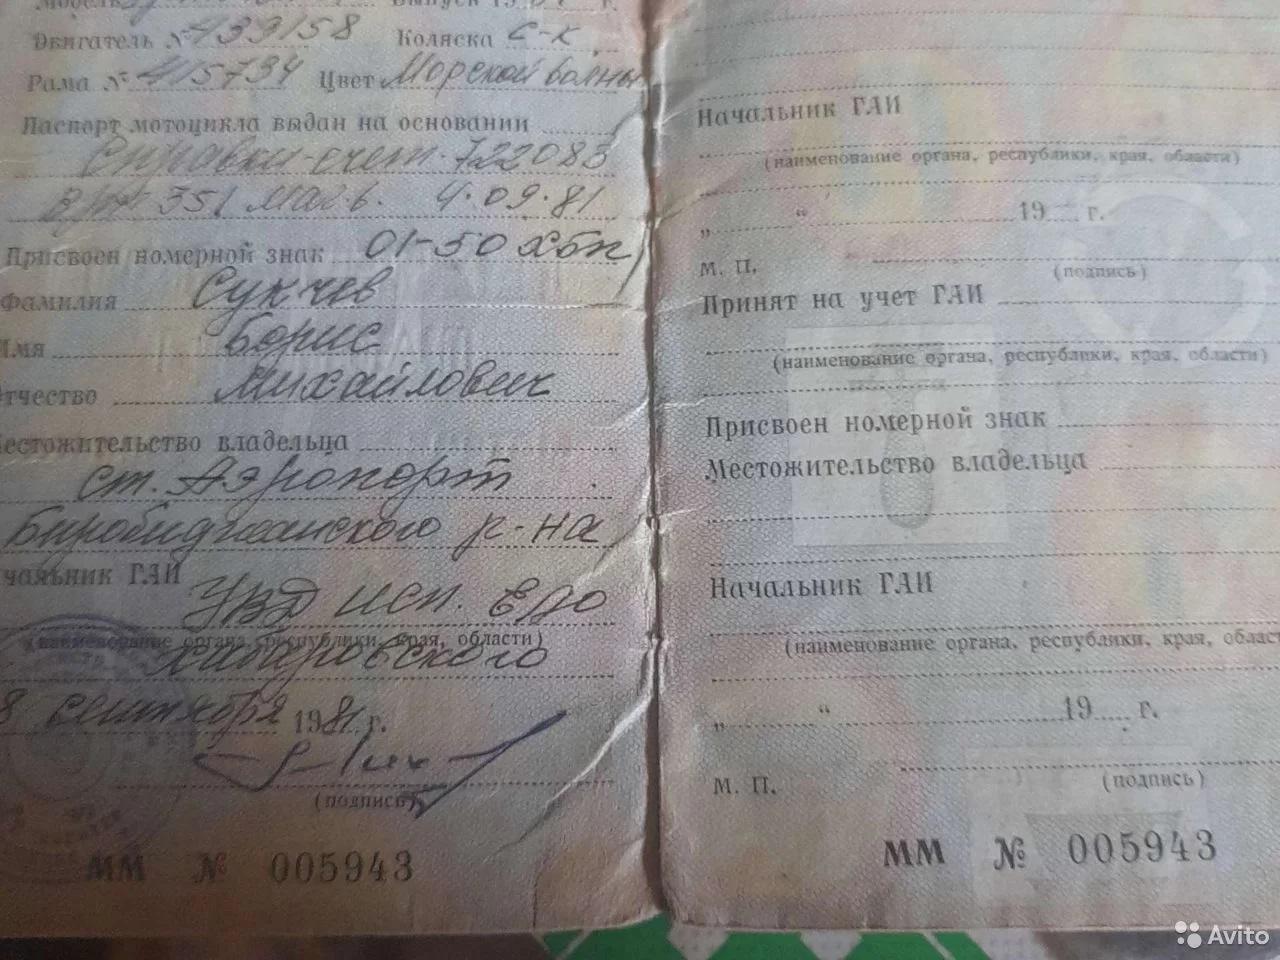 Двигатель № 439158 Коляска С-К
Рама № 415734 Цвет Морской волны
Паспорт мотоцикла выдан на основании
Справки-счет 722083
351 маг. 4.09.81
Присвоен номерной знак 01-50 Хбп
Фамилия Сукчев
Имя Борис
Отчество Михайлович
Местожительство владельца
ст. Аэропорт
Биробиджанского р-на
Начальник ГАИ УВД исп.
(наименование органа, республики, края, области)
8 сентября 1981 г.
(подпись)
ММ № 005943
Начальник ГАИ
(наименование органа, республики, края, области)
„ “ 19 г.
М. П.
(подпись)
Принят на учет ГАИ
(наименование органа, республики, края, области)
Присвоен номерной знак
Местожительство владельца
Начальник ГАИ
(наименование органа, республики, края, облас
„ “ 19 г.
М. П.
(подпись)
ММ № 005943
Avito